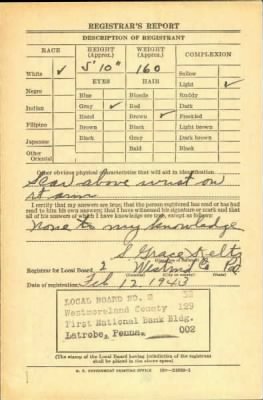 REGISTRAR'S REPORT
DESCRIPTION OF REGISTRANT
RACE HEIGHT (Approx.) WEIGHT (Approx.) COMPLEXION
5' 10" 160
White ✓ EYES HAIR Sallow
Light ✓
Negro Blue Blonde Ruddy
Gray ✓ Red Dark
Indian Hazel Brown ✓ Freckled
Filipino Brown Black Light brown
Japanese Black Gray Dark brown
Bald Black
Other Oriental
Other obvious physical characteristics that will aid in identification
Scar above wrist on
rt arm
I certify that my answers are true; that the person registered has read or has had
read to him his own answers; that I have witnessed his signature or mark and that
all of his answers of which I have knowledge are true, except as follows:
None to my knowledge
S. Grace
Registrar for Local Board 2 Westmd Co Pa
Date of registration Feb 12 1943
LOCAL BOARD NO. 2 32
Westmoreland County 129
First National Bank Bldg.
Latrobe, Penna. 002
(The stamp of the Local Board having jurisdiction of the registrant
shall be placed in the above space.)
U. S. GOVERNMENT PRINTING OFFICE